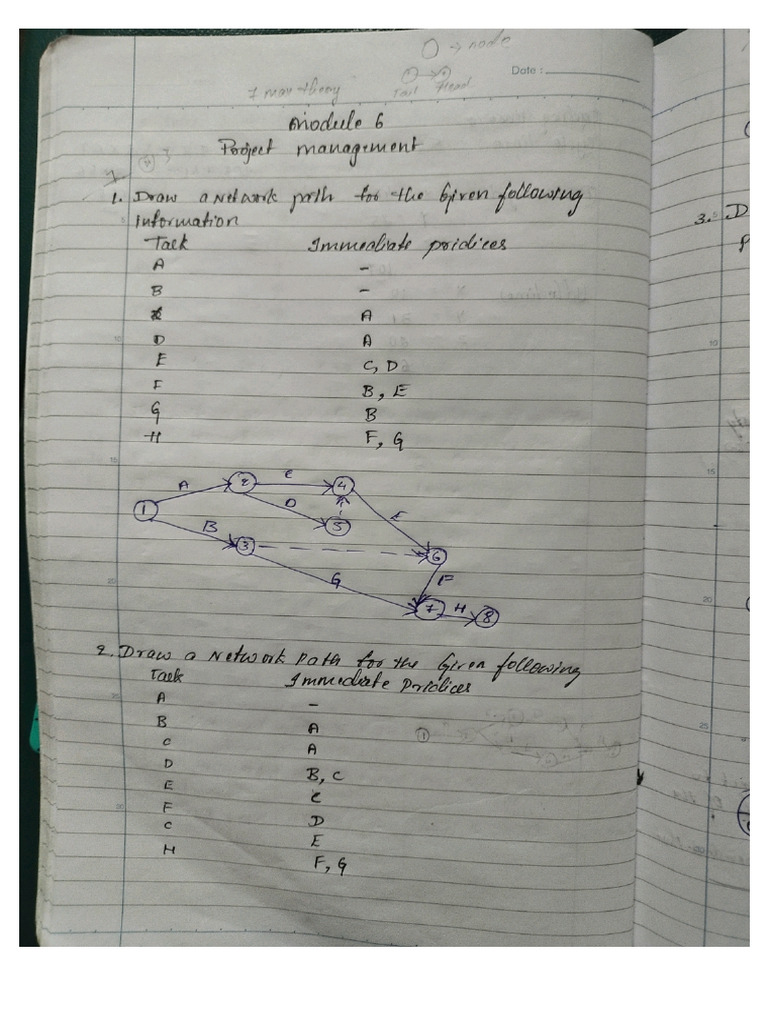 O → node
Date :
7 mar theory
Tail Head
Module 6
Project management
1. Draw a Network path for the Given following
information
Task Immediate pridices
A -
B -
A
D A
E C, D
F B, E
G B
H F, G
1 A 2 C 4
D 5
B 3 E 6
G F
7 H 8
2. Draw a Network Path for the Given following
Task Immediate Pridices
A -
B A
C A
D B, C
E C
F D
C E
H F, G
3. D
P
10
15
20
25
5
10
15
20
25
30